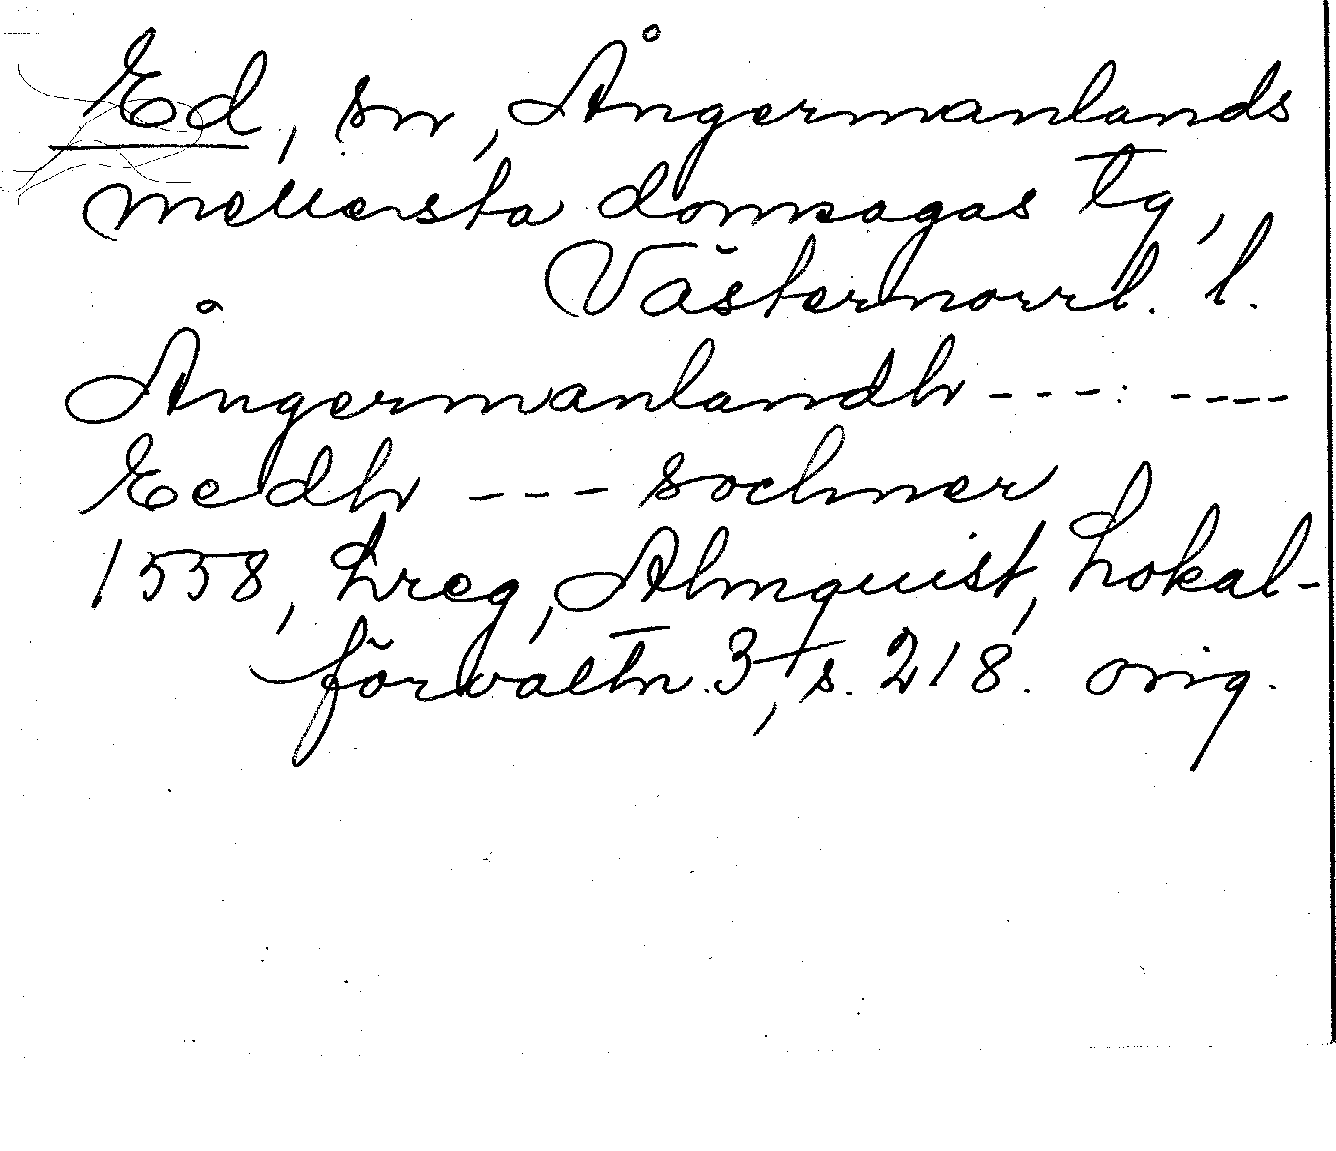 Ed, sn, Ångermanlands
mellersta domsagas tg,
Västernorrl. l.
Ångermanlandh ---: ----
Eedh --- sochner
1558, hreg, Almquist, Lokal-
förvaltn. 3, s. 218. orig.